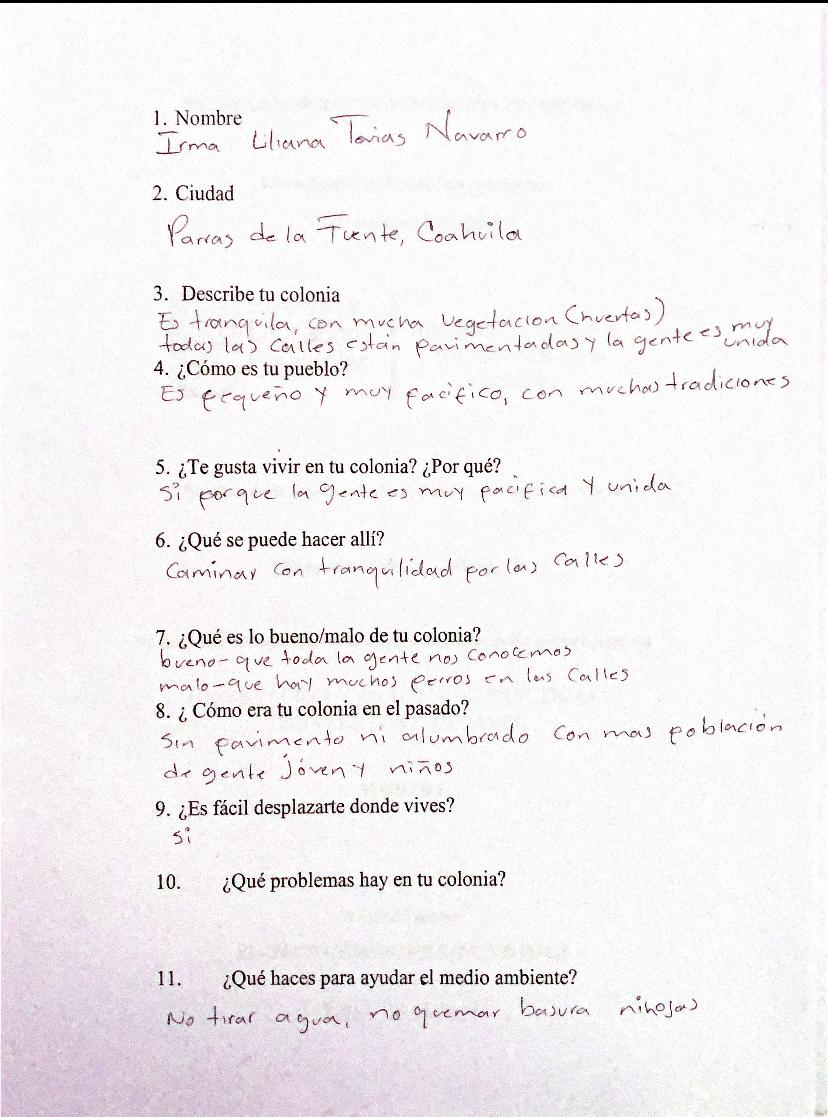 1. Nombre
Irma Liliana Tovias Navarro
2. Ciudad
Parras de la Fuente, Coahuila
3. Describe tu colonia
Es tranquila, con mucha vegetacion (huertas)
todas las calles están pavimentadas y la gente es muy unida
4. ¿Cómo es tu pueblo?
Es pequeño y muy pacifico, con muchas tradiciones
5. ¿Te gusta vivir en tu colonia? ¿Por qué?
Si porque la gente es muy pacifica y unida
6. ¿Qué se puede hacer allí?
Caminar con tranquilidad por las calles
7. ¿Qué es lo bueno/malo de tu colonia?
bueno - que toda la gente nos conocemos
malo - que hay muchos perros en las calles
8. ¿ Cómo era tu colonia en el pasado?
Sin pavimento ni alumbrado con mas población
de gente jóven y niños
9. ¿Es fácil desplazarte donde vives?
Si
10. ¿Qué problemas hay en tu colonia?
11. ¿Qué haces para ayudar el medio ambiente?
No tirar agua, no quemar basura ni hojas